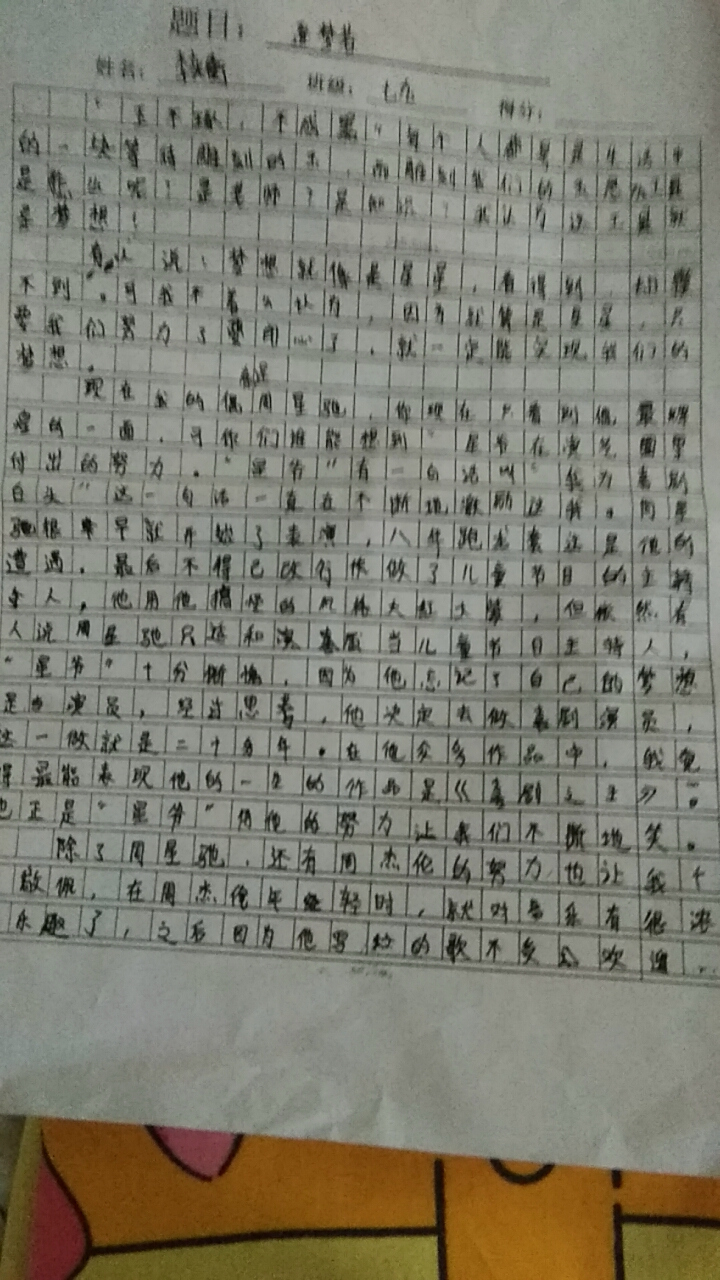 题目：追梦者
姓名： 班级：七九 得分：
"玉不琢，不成器"每个人都是生活中
的一块等待雕刻的玉，而雕刻我们的玉
是什么呢？是老师？是知识？我认为这玉
是梦想！
有人说：梦想就像是星星，看得到 却
不到。可我不着么认为，因为就算是星星，只
要我们努力了 用心了，就一定能实现我们的
梦想。
现在我的偶 周星驰，你现在只看到他最辉
煌的一面，可你们谁能想到"星爷在演艺圈里
付出的努力。"星爷"有一句话叫"我为喜剧
白头"这一句话一直在不断地激励这我。周星
驰很早就开始了表演，八年跑龙套这是他的
遭遇。最后不得已改行 做了儿童节目的主持
人，他用他搞怪的风格大红大 ，但依然有
人说周星驰只适和演 当儿童节目主持人，
"星爷"十分惭愧，因为他忘记了自己的梦想
是 演员，经过思考，他决定去做喜剧演员，
这一做就是二十多年。在他众多作品中，我觉
得最能表现他的一 的作品是《喜剧之王》。
也正是"星爷" 他的努力让我们不断地笑。
除了周星驰，还有周杰伦的努力也让我十
敬佩，在周杰伦年 轻时，就对音乐有很浓
乐趣了，之后因为他写 的歌不受 欢迎，